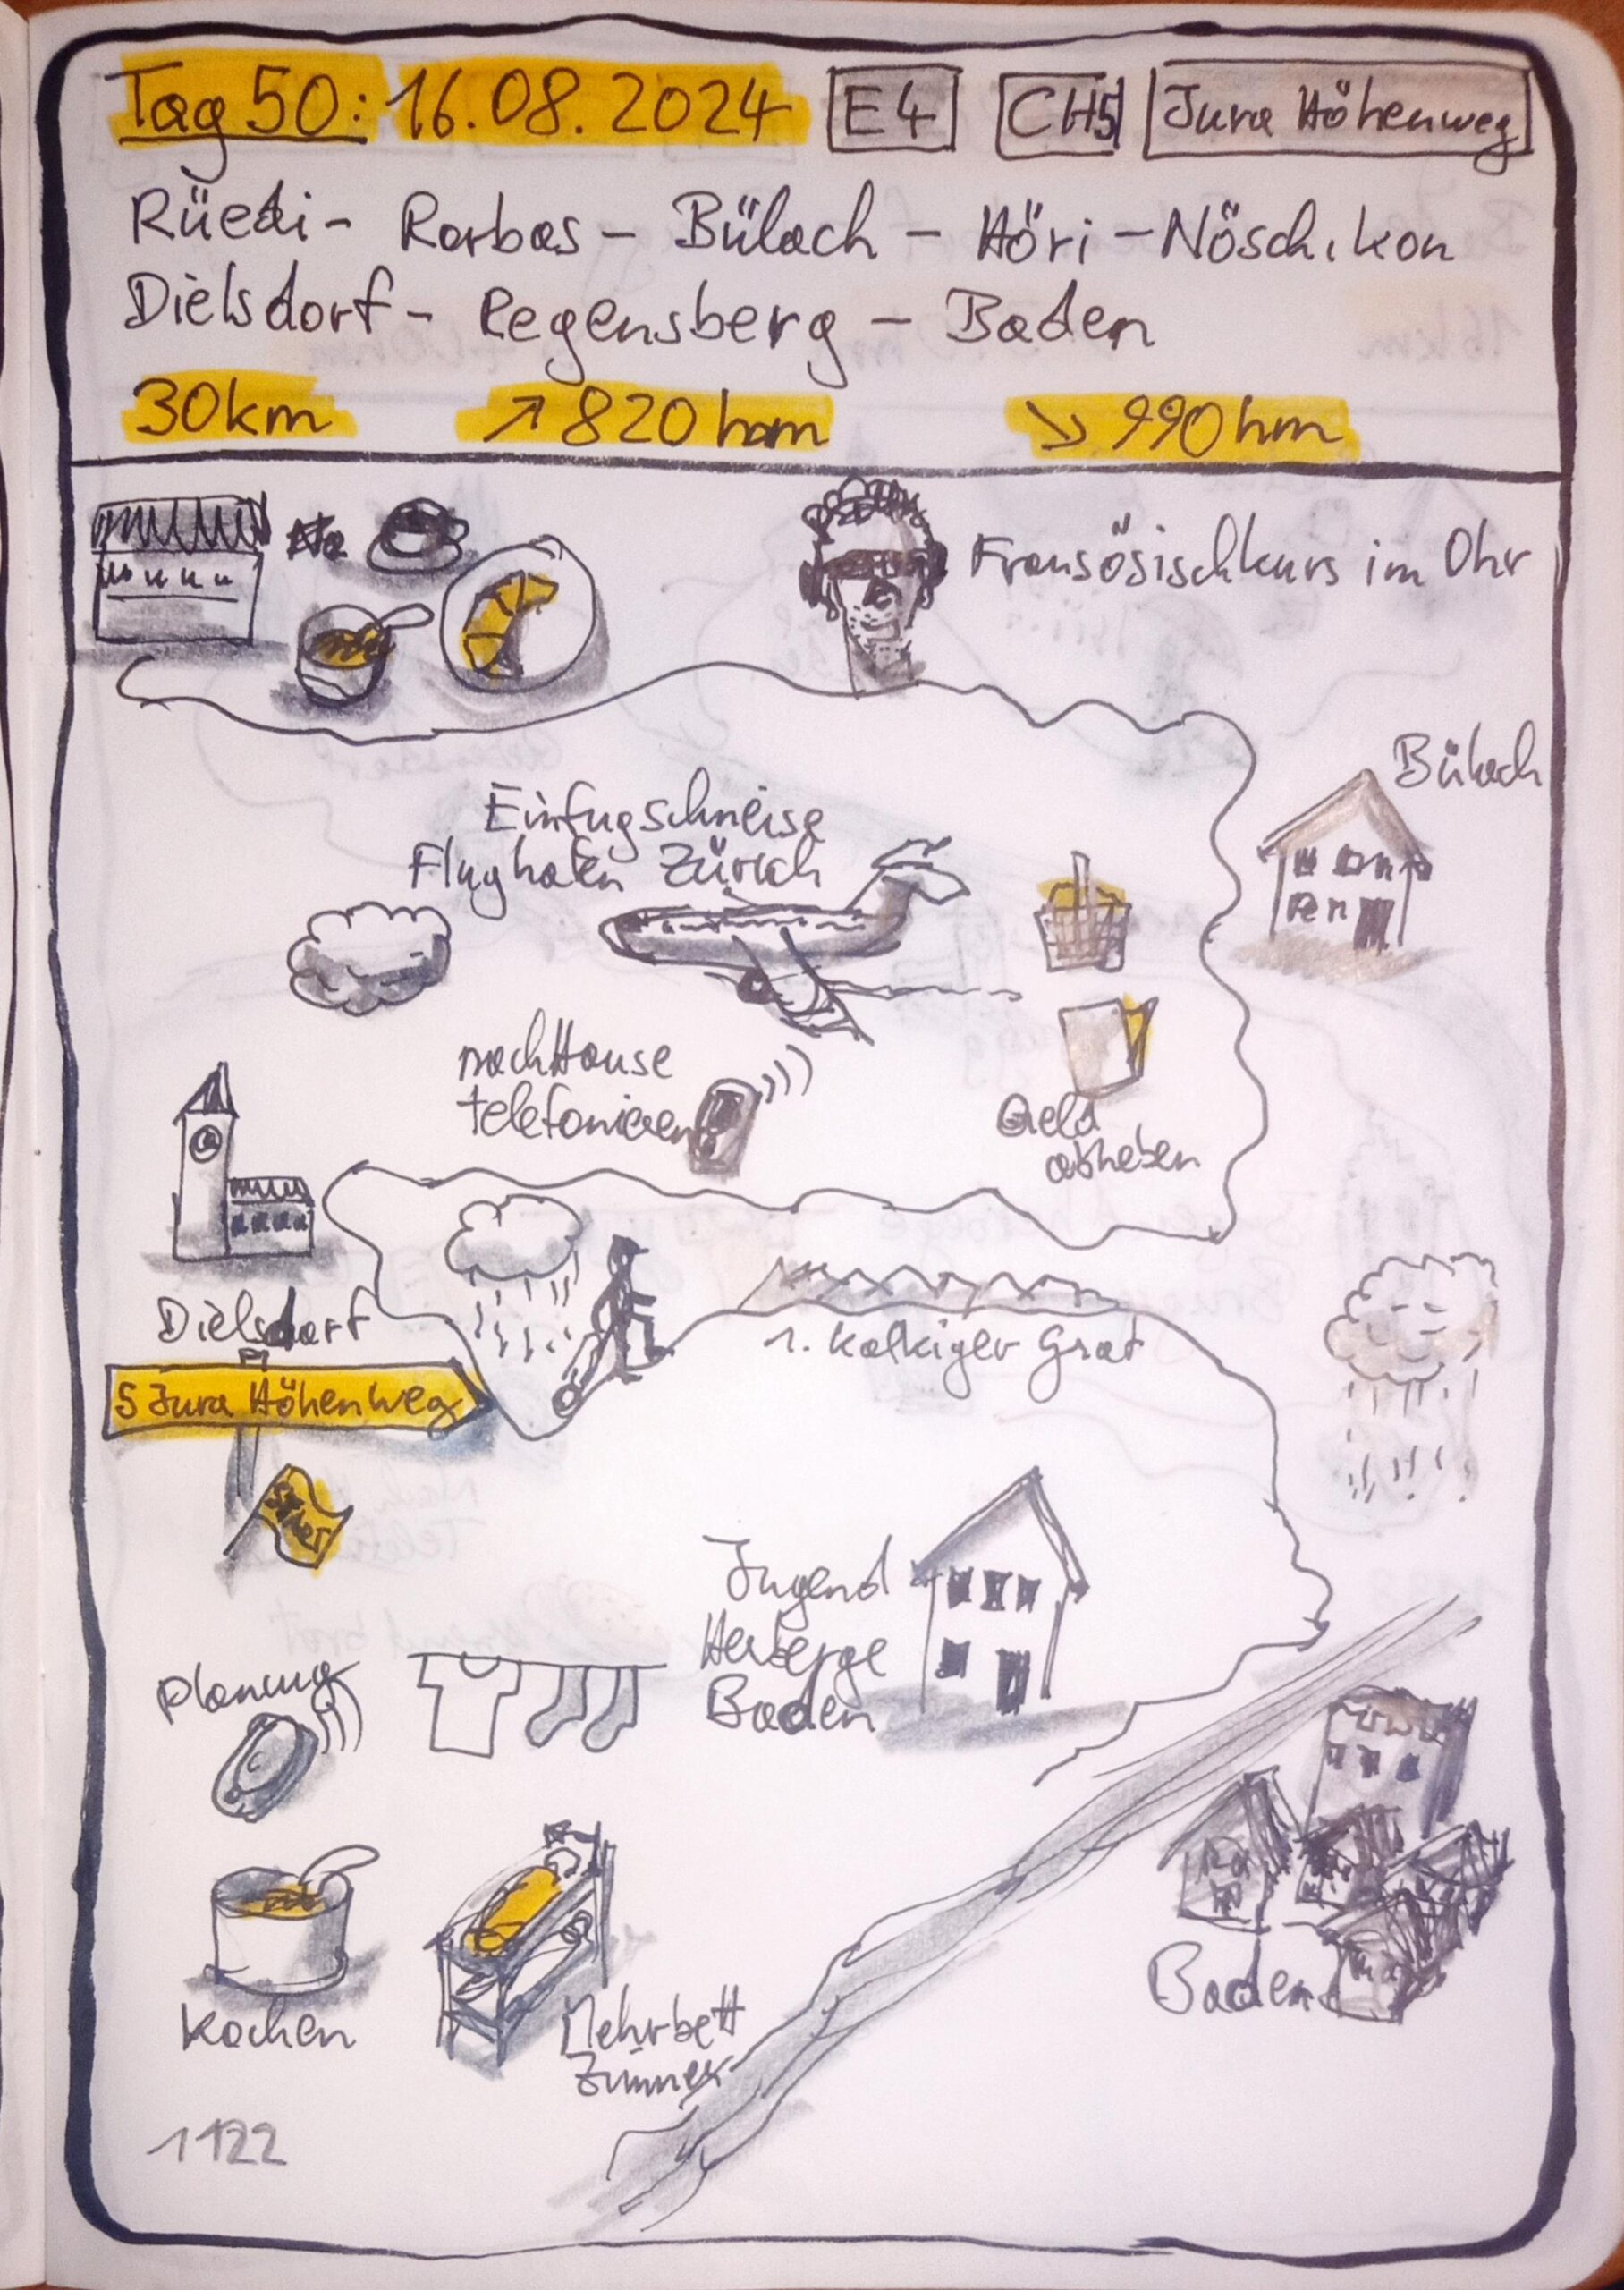 Tag 50: 16.08.2024 E4 CH5 Jura Höhenweg
Rüedi - Rorbas - Bülach - Höri - Nöschikon
Dielsdorf - Regensberg - Baden
30km ↗ 820 hm ↘ 990 hm
Fransösischkurs im Ohr
Bülach
Einfugschneise
Flughafen Zürich
nach Hause
telefonieren
Geld
abheben
Dielsdorf
1. kalkiger Grat
5 Jura Höhenweg
Jugend
Herberge
Baden
Planung
Kochen
Mehrbett
Zimmer
Baden
1122